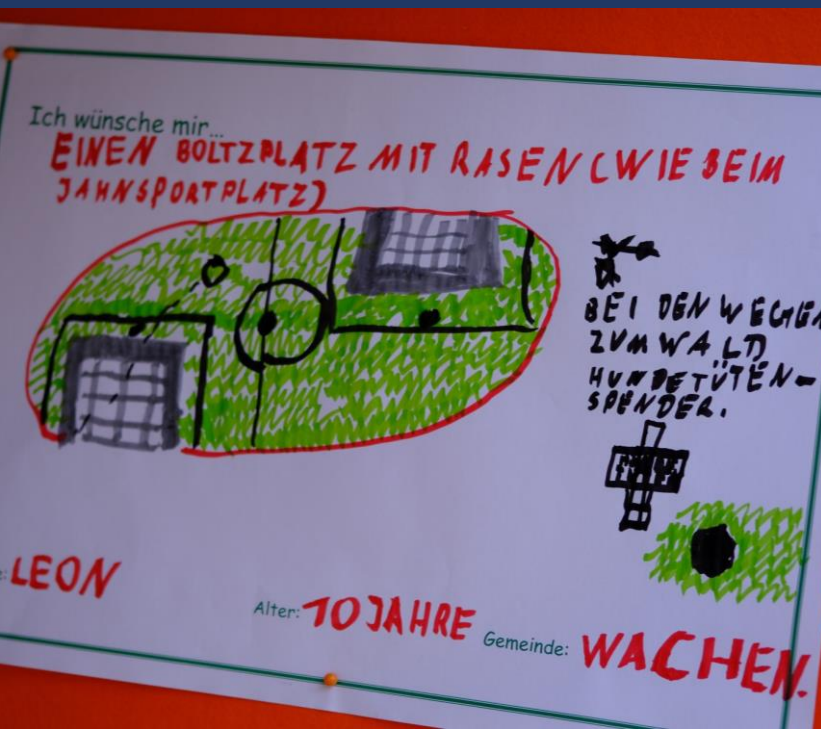 Ich wünsche mir...
EINEN BOLTZPLATZ MIT RASEN (WIE BEIM
JAHNSPORTPLATZ)
BEI DEN WEGEN
ZUM WALD
HUNDETÜTEN-
SPENDER.
LEON
Alter: 10 JAHRE
Gemeinde: WACHEN.